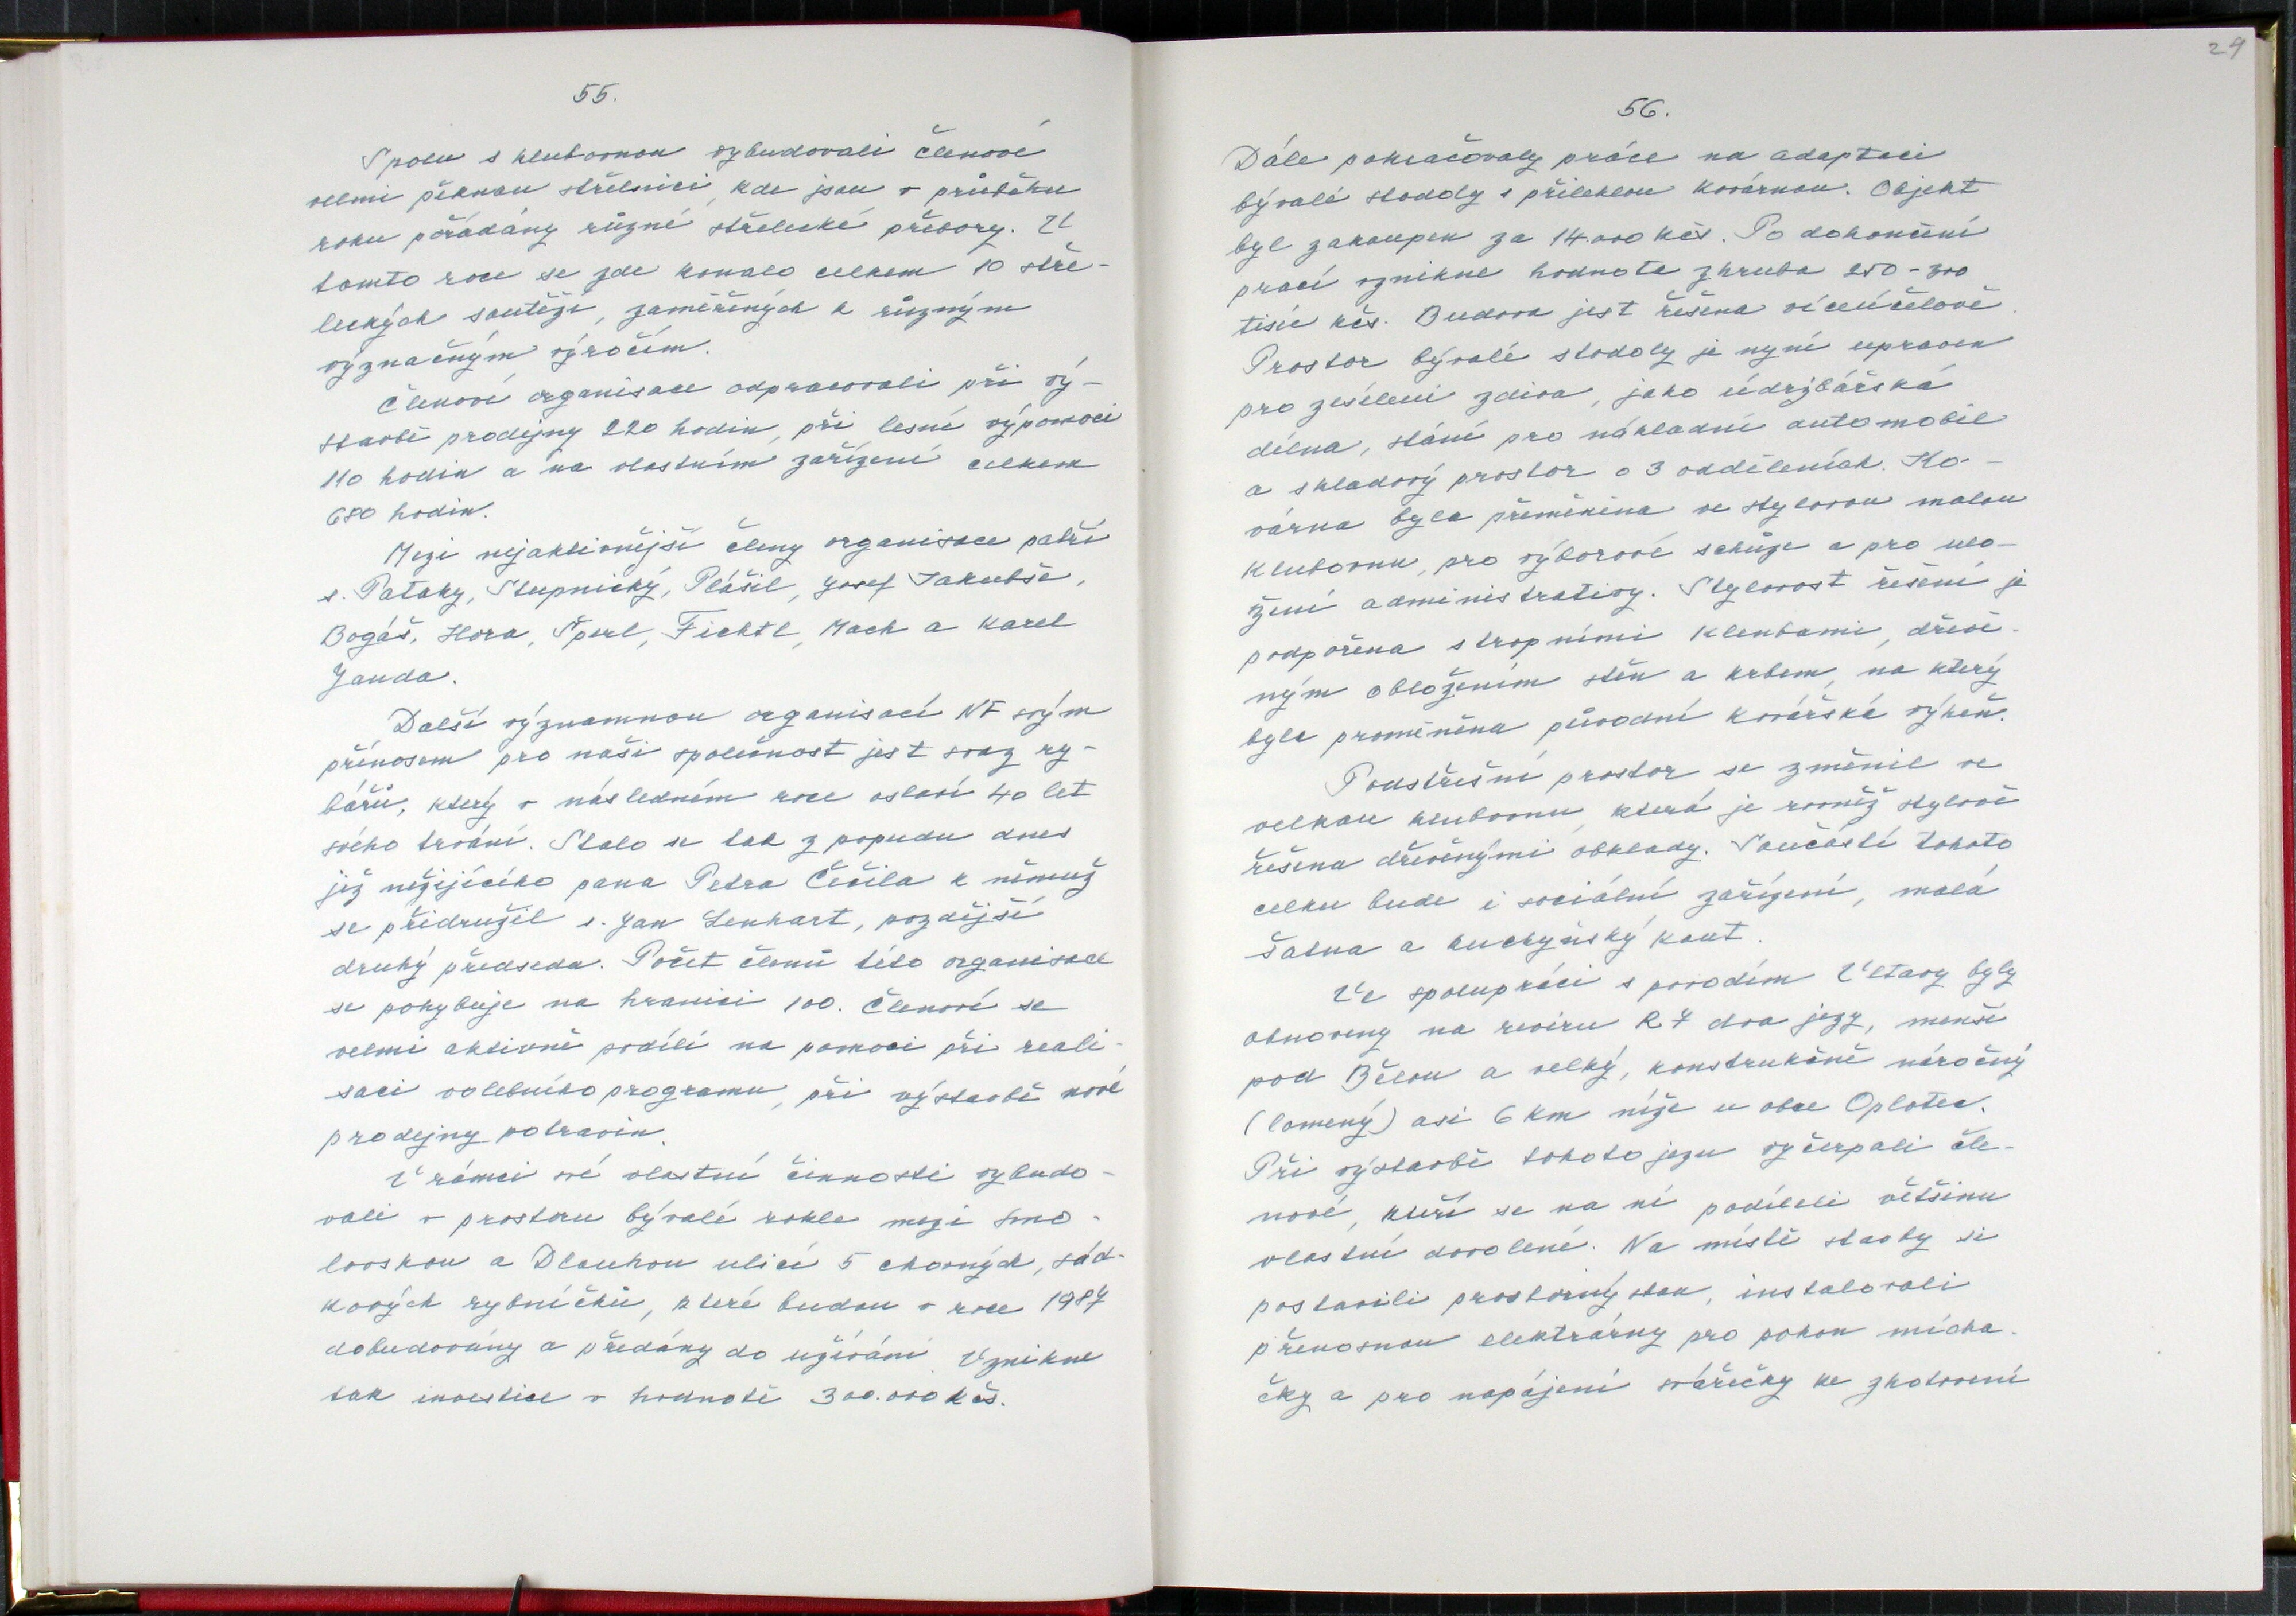 55.
Spolu s klubovnou vybudovali členové
velmi pěknou střelnici, kde jsou v průběhu
roku pořádány různé střelecké přebory. V
tomto roce se zde konalo celkem 10 stře-
leckých soutěží, zaměřených k různým
význačným výročím.
Členové organisace odpracovali při vý-
stavbě prodejny 220 hodin, při lesní výpomoci
110 hodin a na vlastním zařízení celkem
680 hodin.
Mezi nejaktivnější členy organisace patří
s. Pataky, Stupnický, Plášil, Josef Jakubše,
Bogáš, Hora, Šperl, Fichtl, Mach a Karel
Janda.
Další významnou organisací NF svým
přínosem pro naši společnost jest svaz ry-
bářů, který v následném roce oslaví 40 let
svého trvání. Stalo se tak z popudu dnes
již nežijícího pana Petra Čečila k němuž
se přidružil s. Jan Lenhart, pozdější
druhý předseda. Počet členů této organisace
se pohybuje na hranici 100. Členové se
velmi aktivně podílí na pomoci při reali-
saci volebního programu, při výstavbě nové
prodejny potravin.
V rámci své vlastní činnosti vybudo-
vali v prostoru bývalé rokle mezi Smo-
lovskou a Dlouhou ulicí 5 chovných, sád-
kových rybníčků, které budou v roce 1987
dobudovány a předány do užívání. Vznikne
tak investice v hodnotě 300.000 kčs.
29
56.
Dále pokračovaly práce na adaptaci
bývalé stodoly s přilehlou kovárnou. Objekt
byl zakoupen za 14.000 kčs. Po dokončení
prací vznikne hodnota zhruba 250-300
tisíc kčs. Budova jest řešena víceúčelově.
Prostor bývalé stodoly je nyní upraven
pro zesílení zdiva, jako údržbářská
dílna, stání pro nákladní automobil
a skladový prostor o 3 odděleních. Ko-
várna byla přeměněna ve stylovou malou
klubovnu, pro výborové schůze a pro ulo-
žení administrativy. Stylovost řešení je
podpořena stropními klenbami, dřevě-
ným obložením stěn a krbem, na který
byla proměněna původní kovářská výheň.
Podstřešní prostor se změnil ve
velkou klubovnu, která je rovněž stylově
řešena dřevěnými obklady. Součástí tohoto
celku bude i sociální zařízení, malá
šatna a kuchyňský kout.
Ve spolupráci s povodím Vltavy byly
obnoveny na revíru R7 dva jezy, menší
pod Bělou a velký, konstrukčně náročný
(lomený) asi 6 km níže u obce Oplotec.
Při výstavbě tohoto jezu vyčerpali čle-
nové, kteří se na ní podíleli většinu
vlastní dovolené. Na místě stavby si
postavili prostorný stan, instalovali
přenosnou elektrárny pro pohon mícha-
čky a pro napájení svářečky ke zhotovení